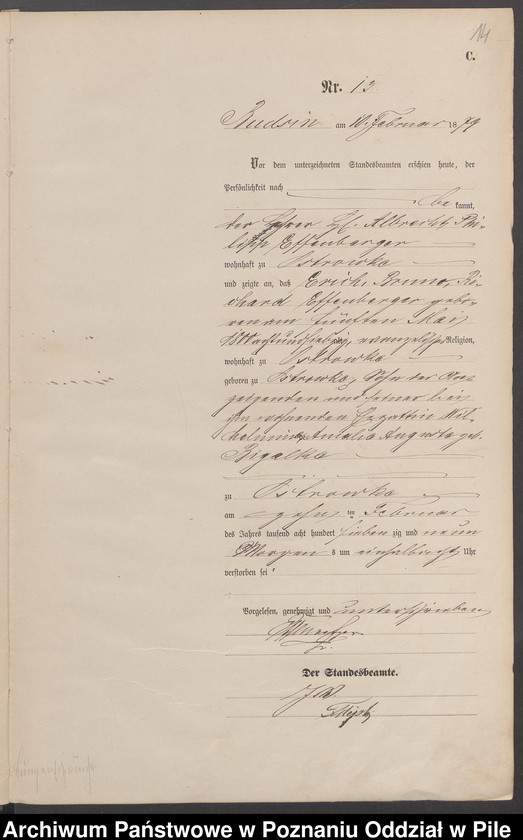 14
C.
Nr. 13
Budsin am 10. Februar 1879
Vor dem unterzeichneten Standesbeamten erschien heute, der
Persönlichkeit nach
be kannt,
der Lehrer Albrecht Phi-
lipp Effenberger
wohnhaft zu Ostrowke
und zeigte an, daß Erich Bruno Ri-
chard Effenberger gebo-
ren am fünften Mai
evangelischer Religion,
wohnhaft zu Ostrowke
geboren zu Ostrowke, Sohn des An-
zeigenden und seiner bei
ihm wohnenden Ehegattin Wil-
helmine Amalie Auguste geb.
Rigalke
zu Ostrowke
am zehn ten Februar
des Jahres tausend acht hundert sieben zig und neun
Morgens um Uhr
verstorben sei
Vorgelesen, genehmigt und unterschrieben
Der Standesbeamte.
J. V.
Archiwum Państwowe w Poznaniu Oddział w Pile